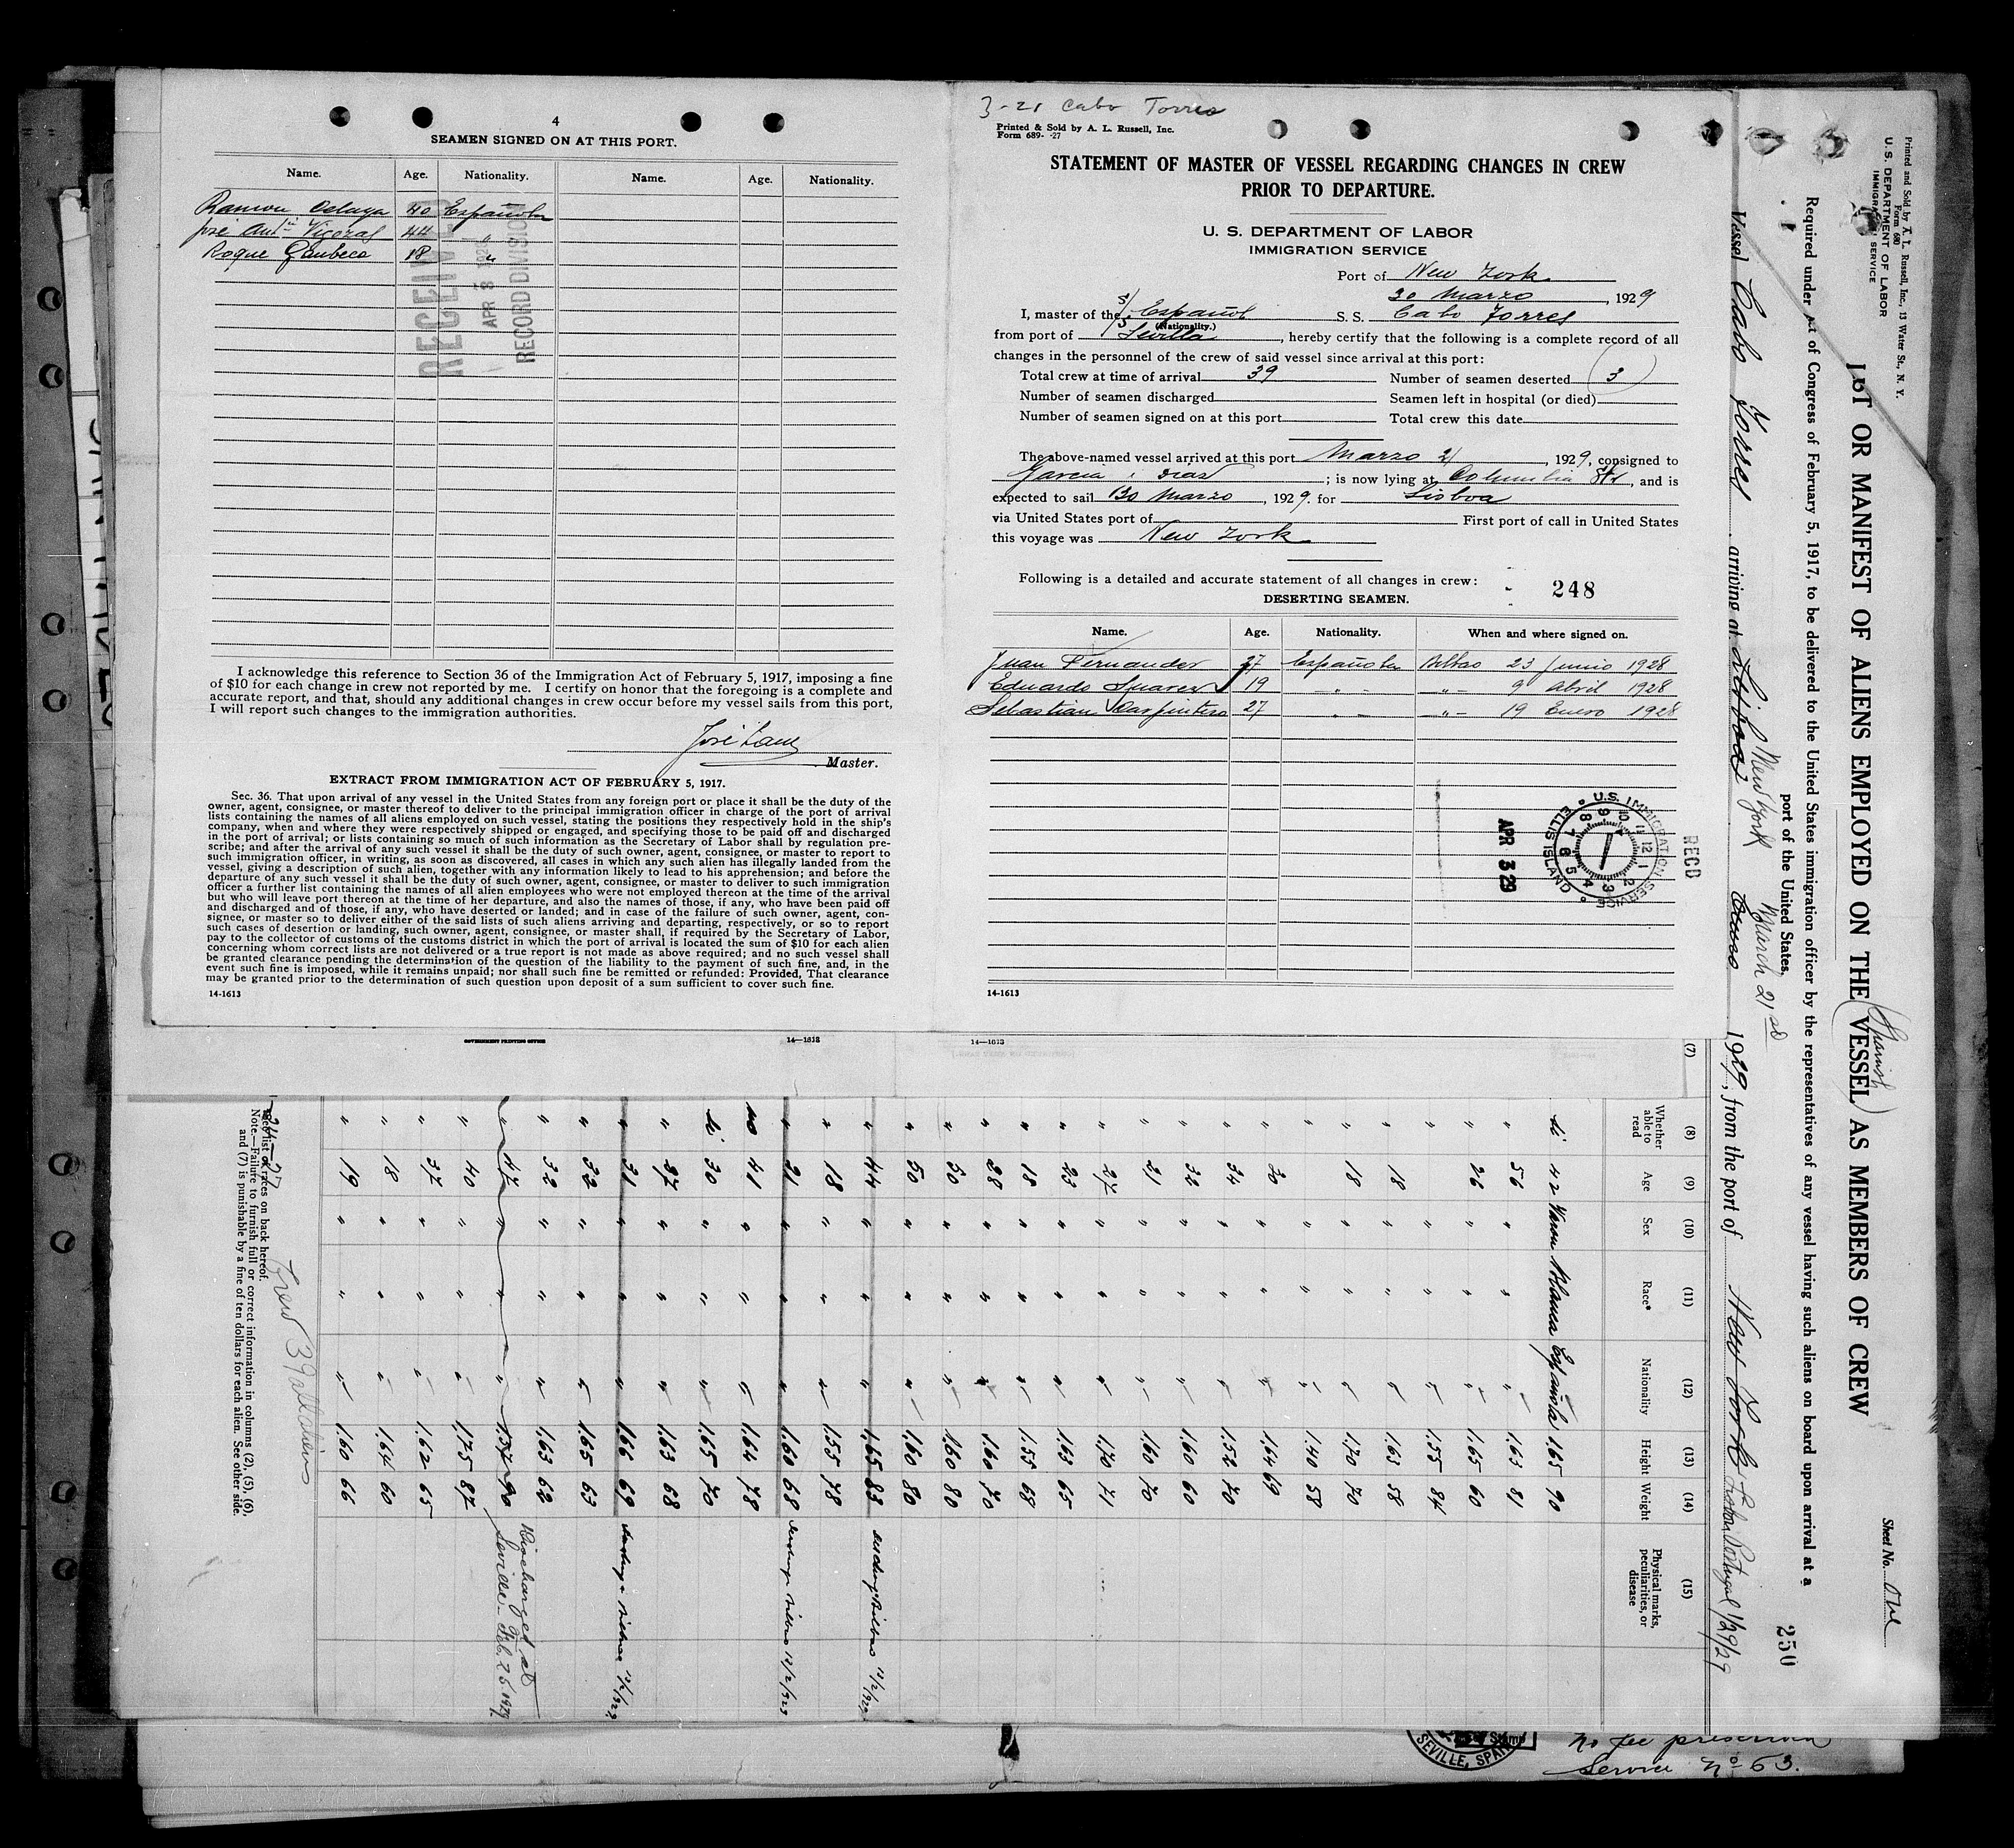 4
SEAMEN SIGNED ON AT THIS PORT.
Name. Age. Nationality. Name. Age. Nationality.
Ramon 40 Española
José Antº 44 "
Roque 18 "
RECEIVED
APR 3 1929
RECORD DIVISION
I acknowledge this reference to Section 36 of the Immigration Act of February 5, 1917, imposing a fine
of $10 for each change in crew not reported by me. I certify on honor that the foregoing is a complete and
accurate report, and that, should any additional changes in crew occur before my vessel sails from this port,
I will report such changes to the immigration authorities.
José
Master.
EXTRACT FROM IMMIGRATION ACT OF FEBRUARY 5, 1917.
Sec. 36. That upon arrival of any vessel in the United States from any foreign port or place it shall be the duty of the
owner, agent, consignee, or master thereof to deliver to the principal immigration officer in charge of the port of arrival
lists containing the names of all aliens employed on such vessel, stating the positions they respectively hold in the ship's
company, when and where they were respectively shipped or engaged, and specifying those to be paid off and discharged
in the port of arrival; or lists containing so much of such information as the Secretary of Labor shall by regulation pre-
scribe; and after the arrival of any such vessel it shall be the duty of such owner, agent, consignee, or master to report to
such immigration officer, in writing, as soon as discovered, all cases in which any such alien has illegally landed from the
vessel, giving a description of such alien, together with any information likely to lead to his apprehension; and before the
departure of any such vessel it shall be the duty of such owner, agent, consignee, or master to deliver to such immigration
officer a further list containing the names of all alien employees who were not employed thereon at the time of the arrival
but who will leave port thereon at the time of her departure, and also the names of those, if any, who have been paid off
and discharged and of those, if any, who have deserted or landed; and in case of the failure of such owner, agent, con-
signee, or master so to deliver either of the said lists of such aliens arriving and departing, respectively, or so to report
such cases of desertion or landing, such owner, agent, consignee, or master shall, if required by the Secretary of Labor,
pay to the collector of customs of the customs district in which the port of arrival is located the sum of $10 for each alien
concerning whom correct lists are not delivered or a true report is not made as above required; and no such vessel shall
be granted clearance pending the determination of the question of the liability to the payment of such fine, and, in the
event such fine is imposed, while it remains unpaid; nor shall such fine be remitted or refunded: Provided, That clearance
may be granted prior to the determination of such question upon deposit of a sum sufficient to cover such fine.
14-1613
3-21 Cabo Torres
Printed & Sold by A. L. Russell, Inc.
Form 689- -27
STATEMENT OF MASTER OF VESSEL REGARDING CHANGES IN CREW
PRIOR TO DEPARTURE.
U. S. DEPARTMENT OF LABOR
IMMIGRATION SERVICE
Port of New York
30 Marzo, 1929
I, master of the s/s Español S. S. Cabo Torres
(Nationality.)
from port of Sevilla, hereby certify that the following is a complete record of all
changes in the personnel of the crew of said vessel since arrival at this port:
Total crew at time of arrival 39 Number of seamen deserted 3
Number of seamen discharged Seamen left in hospital (or died)
Number of seamen signed on at this port Total crew this date
The above-named vessel arrived at this port Marzo 21, 1929, consigned to
Garcia i Diaz; is now lying at Columbia St, and is
expected to sail 30 Marzo, 1929. for Lisboa
via United States port of First port of call in United States
this voyage was New York
Following is a detailed and accurate statement of all changes in crew:
248
DESERTING SEAMEN.
Name. Age. Nationality. When and where signed on.
Juan Fernandez 27 Española Bilbao 23 Junio 1928
Eduardo Suarez 19 " " 9 Abril 1928
Sebastian Carpintero 27 " " 19 Enero 1928
RECD
U.S. IMMIGRATION SERVICE ELLIS ISLAND
APR 3 29
14-1613
GOVERNMENT PRINTING OFFICE
14—1613
14—1613
Printed and Sold by A. L. Russell, Inc., 13 Water St., N. Y.
Form 680
U. S. DEPARTMENT OF LABOR
IMMIGRATION SERVICE
Sheet No. One
OR MANIFEST OF ALIENS EMPLOYED ON THE VESSEL AS MEMBERS OF CREW
Spanish
250
Required under Act of Congress of February 5, 1917, to be delivered to the United States immigration officer by the representatives of any vessel having such aliens on board upon arrival at a
port of the United States.
New York March 21st
Vessel Cabo Torres arriving at 1929, from the port of New York Lisbon Portugal 1/29/29
(7) (8) (9) (10) (11) (12) (13) (14) (15)
Whether able to read Age Sex Race* Nationality Height Weight Physical marks, peculiarities, or disease
si 42 Varon Blanca Española 165 90
" 56 " " " 1.63 81
" 26 " " " 1.65 60
" " " " 1.55 84
" 18 " " " 1.63 58
" 18 " " " 1.70 70
" " " " 1.40 58
" 20 " " " 1.64 69
" 34 " " " 1.52 70
" 32 " " " 1.60 60
" 21 " " " 1.60 70
" 27 " " " 1.70 71
" 23 " " " 1.63 65
" 18 " " " 1.55 68
" 28 " " " 1.60 70
" 50 " " " 1.60 80
" 50 " " " 1.60 80
" 44 " " " 1.65 83 Bilbao
" 18 " " " 1.55 78
" 21 " " " 1.60 68 Bilbao
no 41 " " " 1.64 78
si 30 " " " 1.65 70
" 27 " " " 1.63 68
" 31 " " " 1.66 69
" 32 " " " 1.65 63
" 32 " " " 1.63 62
" 47 " " " 1.57 90 Discharged at Seville - Feb. 25 1929
" 40 " " " 1.75 87
" 37 " " " 1.62 65
" 18 " " " 1.64 60
" 19 " " " 1.60 66
Crew 39 all aliens
list of races on back hereof.
Note.—Failure to furnish full or correct information in columns (2), (5), (6),
and (7) is punishable by a fine of ten dollars for each alien. See other side.
SEVILLE, SPAIN
Stamp
No fee prescribed
Service Nº 63.